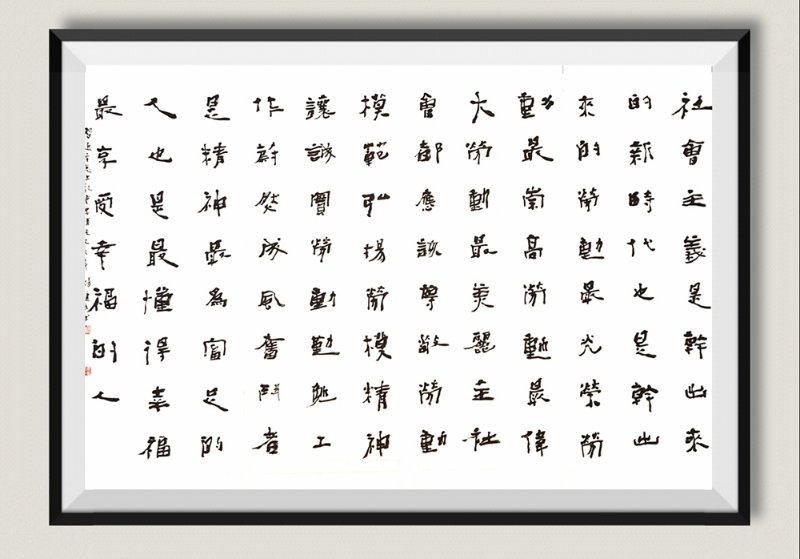 社會主義是幹出來
的新時代也是幹出
來的勞動最光榮勞
動最崇高勞動最偉
大勞動最美麗全社
會都應該尊敬勞動
模範弘揚勞模精神
讓誠實勞動勤勉工
作蔚然成風奮鬥者
是精神最為富足的
人也是最懂得幸福
最享受幸福的人